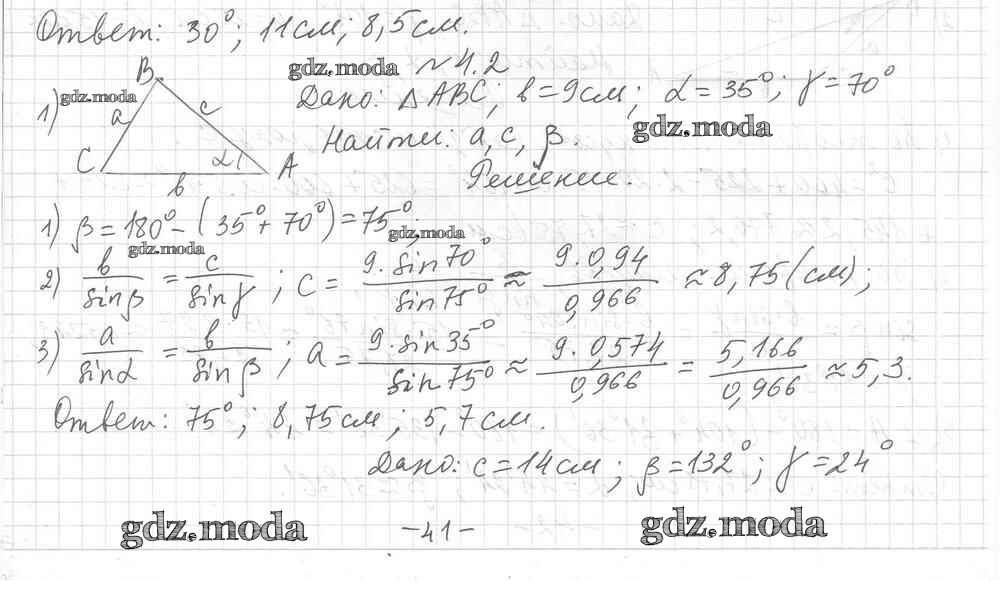 Ответ: 30°; 11см; 8,5см.
gdz.moda №4.2
1) gdz.moda Дано: △ABC; b=9см; α=35°; γ=70°
gdz.moda
Найти: a, c, β.
B a c C α A b
Решение.
1) β=180°-(35°+70°)=75°; gdz.moda
gdz.moda
2) b/sinβ = c/sinγ; c = 9·sin70°/sin75° ≈ 9·0,94/0,966 ≈ 8,75(см);
3) a/sinα = b/sinβ; a = 9·sin35°/sin75° ≈ 9·0,574/0,966 = 5,166/0,966 ≈ 5,3.
Ответ: 75°; 8,75см; 5,7см.
Дано: c=14см; β=132°; γ=24°
gdz.moda -41- gdz.moda